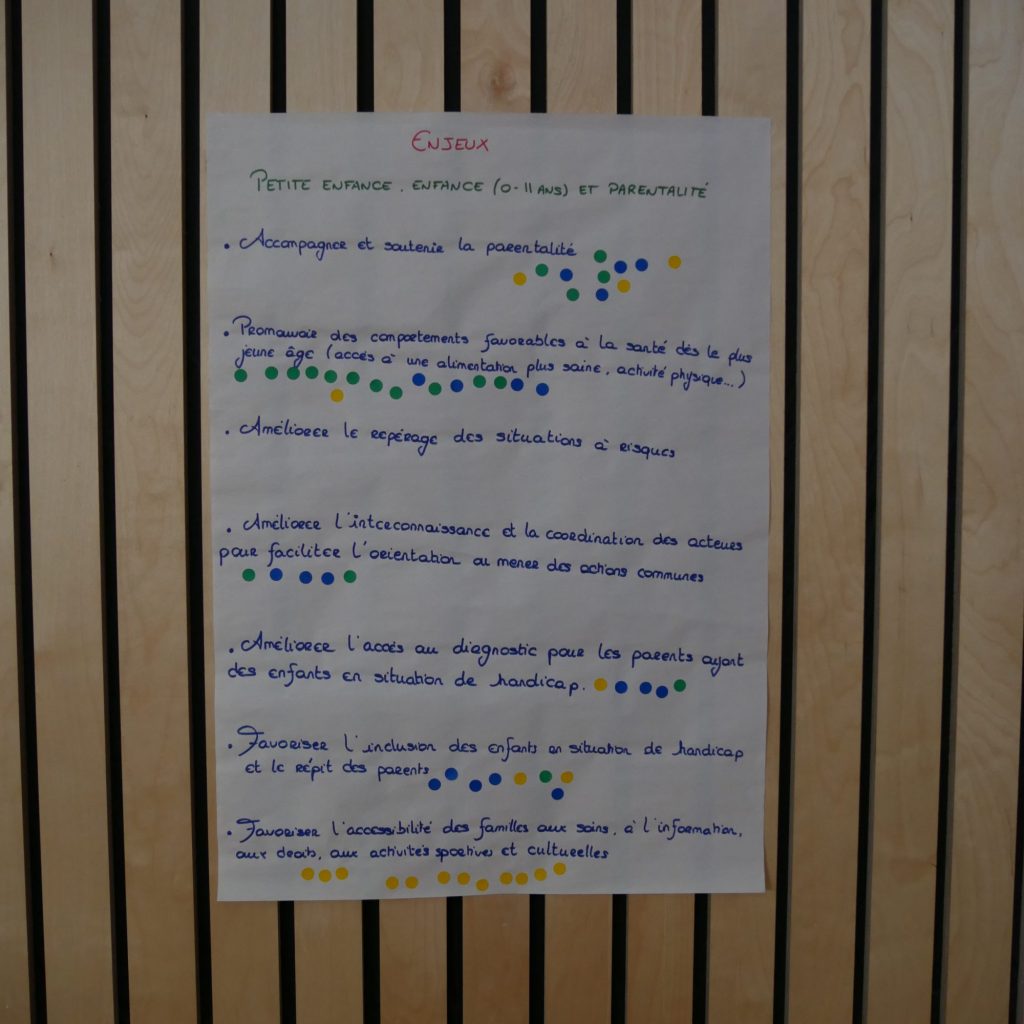 ENJEUX
PETITE ENFANCE. ENFANCE (0-11 ANS) ET PARENTALITÉ
• Accompagner et soutenir la parentalité
• Promouvoir des comportements favorables à la santé dès le plus
jeune âge (accès à une alimentation plus saine, activité physique...)
• Améliorer le repérage des situations à risques
• Améliorer l'interconnaissance et la coordination des acteurs
pour faciliter l'orientation ou mener des actions communes
• Améliorer l'accès au diagnostic pour les parents ayant
des enfants en situation de handicap.
• Favoriser l'inclusion des enfants en situation de handicap
et le répit des parents
• Favoriser l'accessibilité des familles aux soins, à l'information,
aux droits, aux activités sportives et culturelles